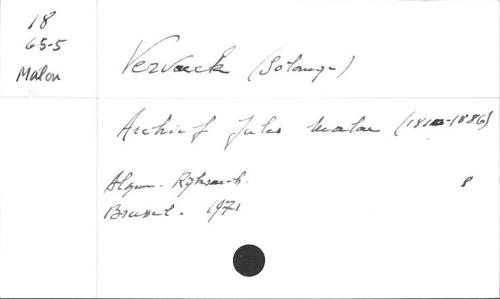 18
65-5
Malou
Vervaeck (Solange)
Archief Jules Malou (1810-1886)
Algem. Rijksarch. 8
Brussel. 1971